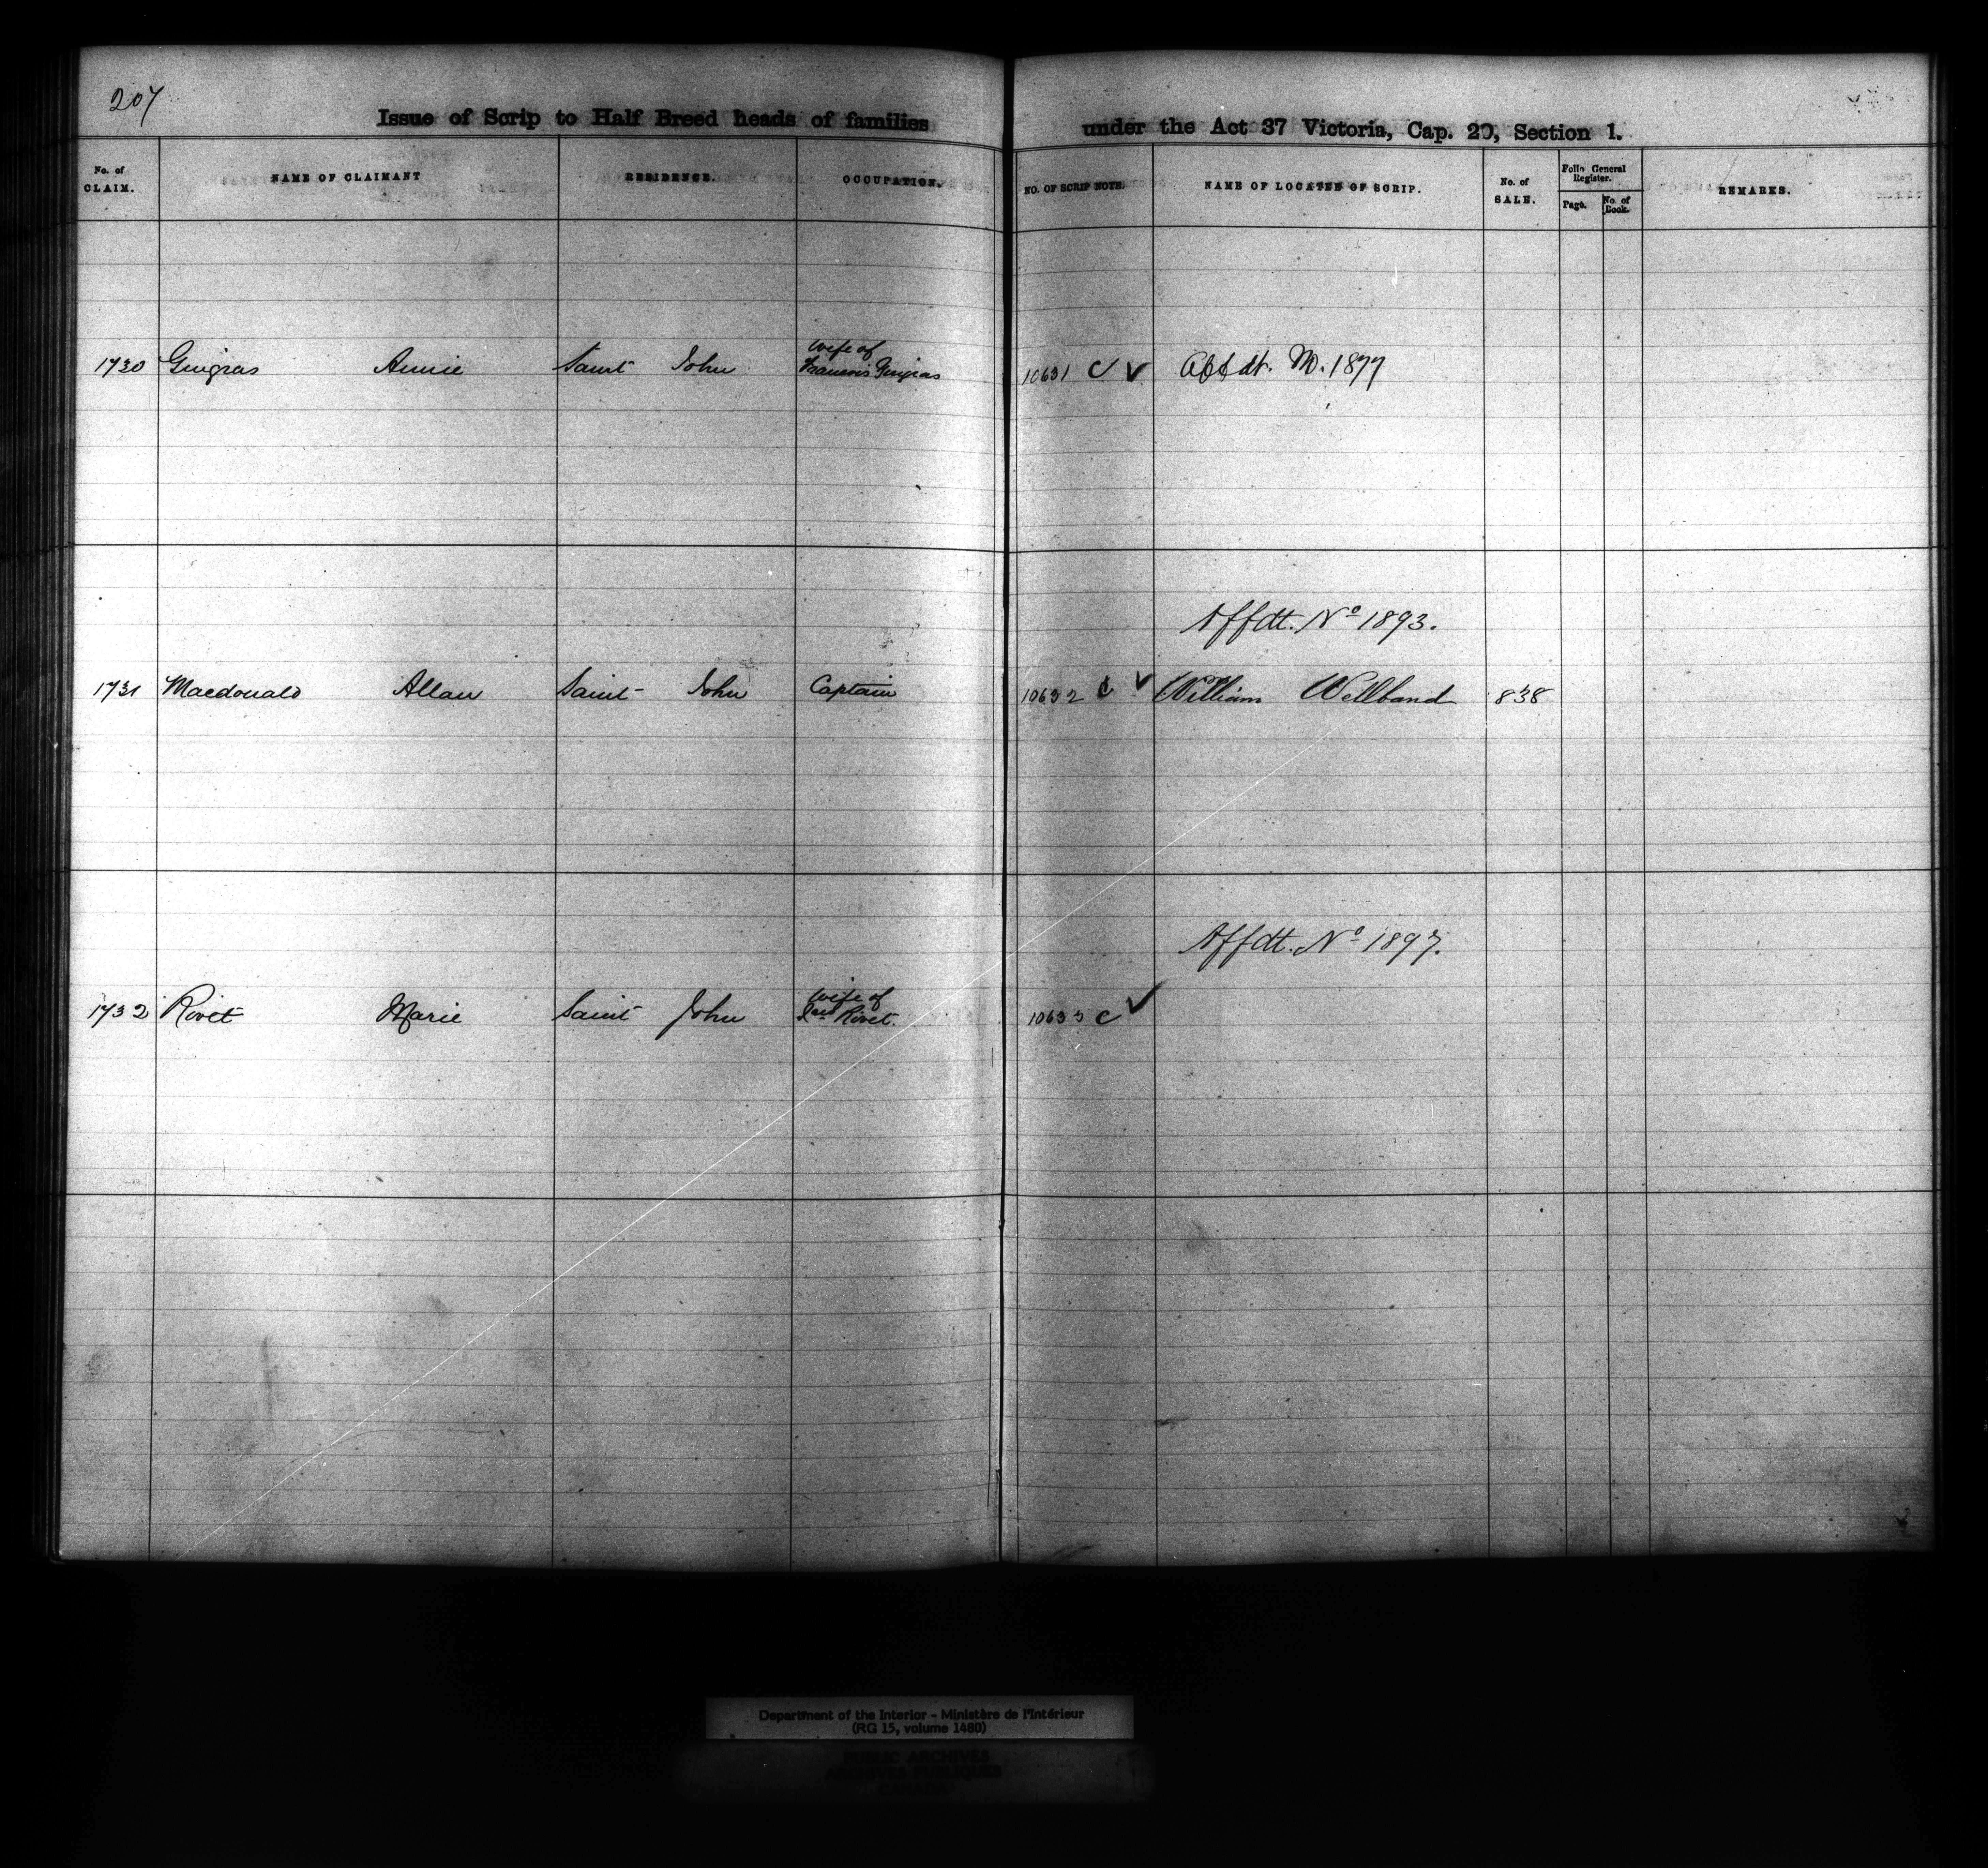 207
Issue of Scrip to Half Breed heads of families under the Act 37 Victoria, Cap. 20, Section 1.
No. of CLAIM. NAME OF CLAIMANT RESIDENCE. OCCUPATION. NO. OF SCRIP NOTE. NAME OF LOCATEE OF SCRIP. No. of SALE. Folio General Register. Page. No. of Book. REMARKS.
wife of
1730 Gingras Annie Saint John Francois Gingras 10631 C ✓ 1877
Affdt. No 1893.
1731 Macdonald Allan Saint John Captain 10632 C ✓ William Wellband 838
Affdt. No 1897.
wife of
1732 Rivet Marie Saint John Rivet. 10633 C ✓
Department of the Interior - Ministère de l'Intérieur
(RG 15, volume 1480)
PUBLIC ARCHIVES
ARCHIVES PUBLIQUES
CANADA